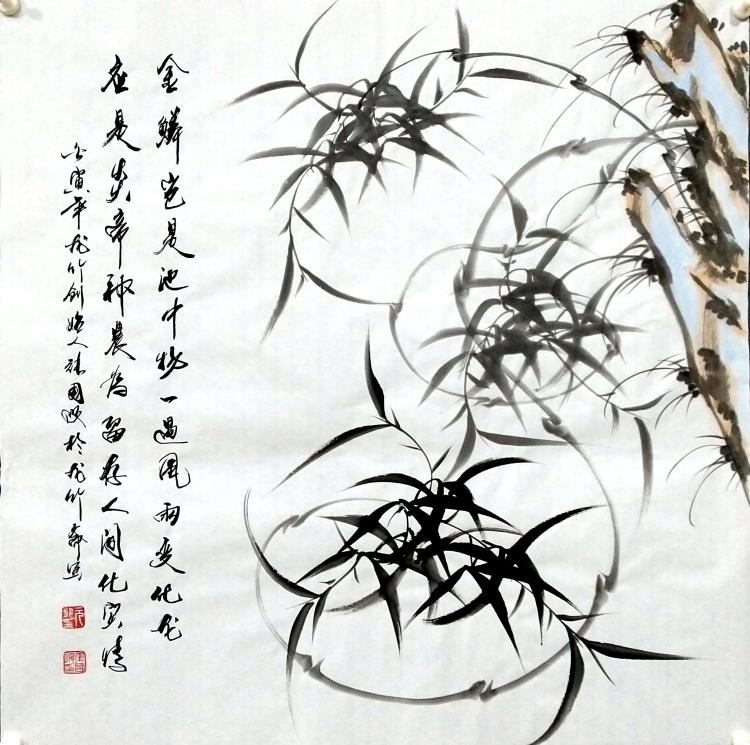 金鳞岂是池中物一遇风雨变化龙
应是炎帝神农为留存人间化真情
壬寅年龙竹创始人 国波于龙竹斋写